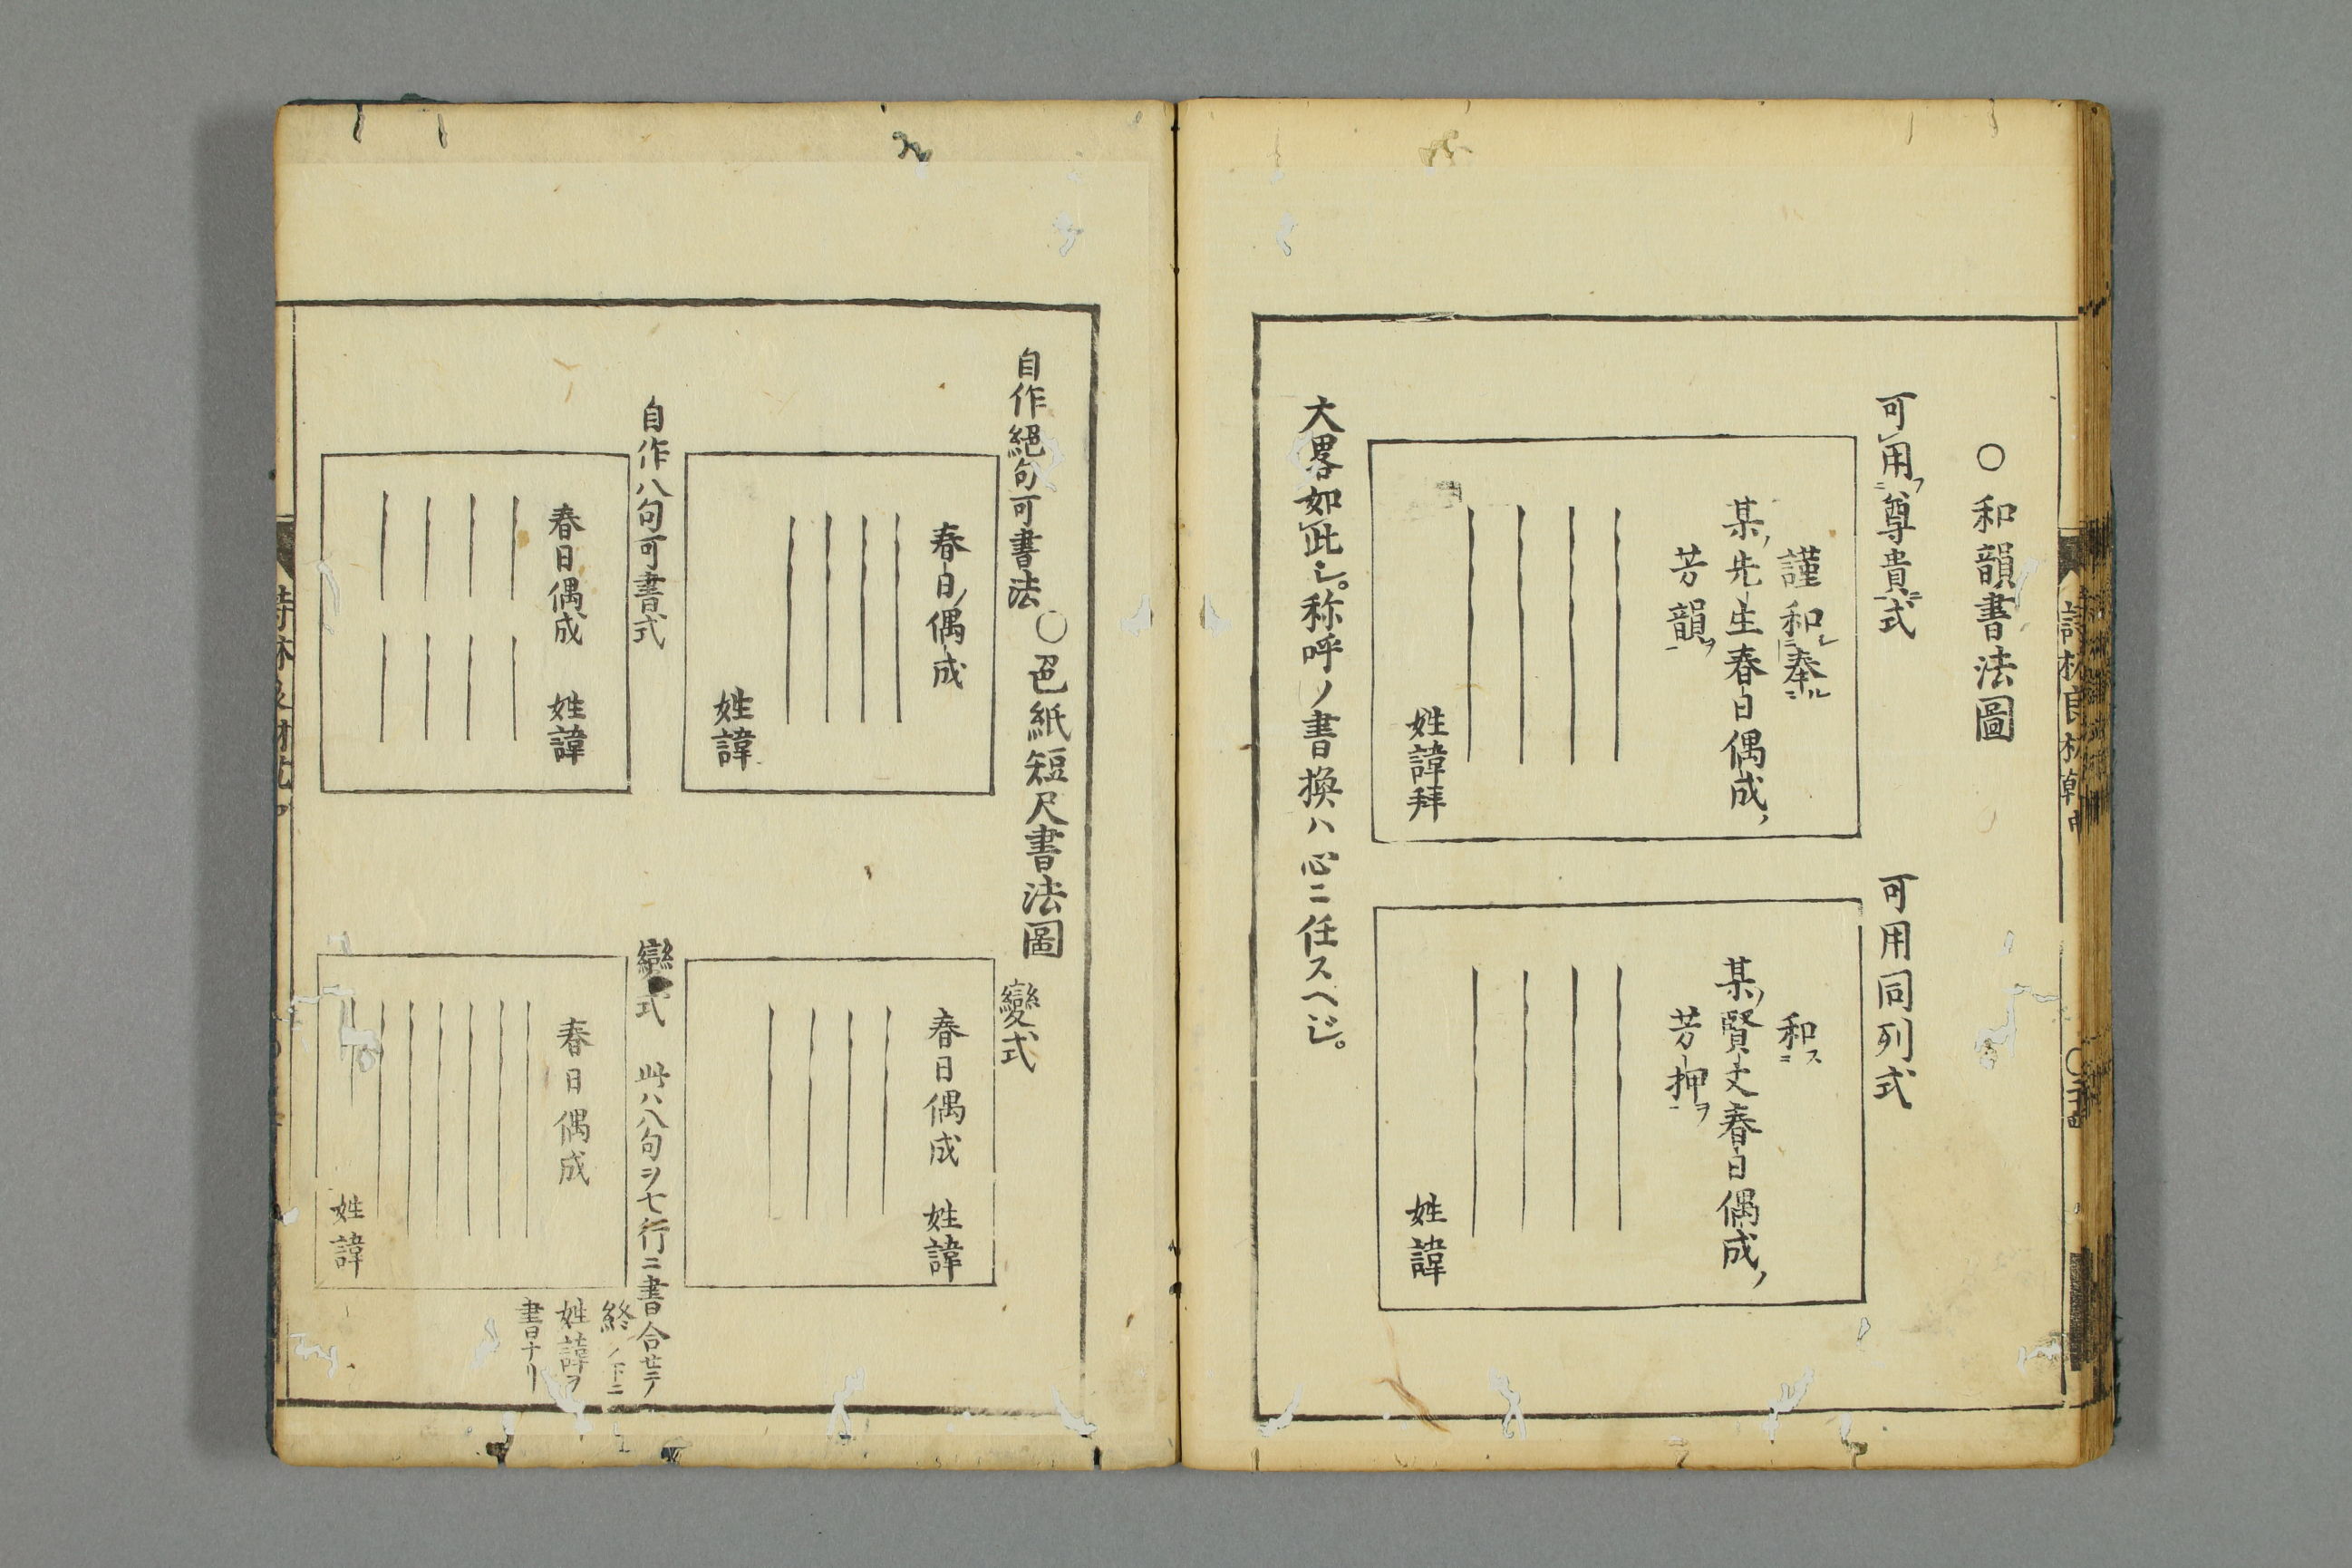 ○和韻書法圖
可用フ尊貴ニ式
謹和シ奉ル
某ノ先生春日偶成ノ
芳韻ヲ
姓諱拜
可用同列式
和ス
某ノ賢丈春日偶成ノ
芳押ヲ
姓諱
大畧如此シ。称呼ノ書換ハ心ニ任スヘシ。
○色紙短尺書法圖
自作絕句可書法
春日偶成
姓諱
變式
春日偶成 姓諱
自作八句可書式
春日偶成 姓諱
變式 此ハ八句ヲ七行ニ書合セテ
終ノ下ニ
姓諱ヲ
書ナリ
春日偶成
姓諱